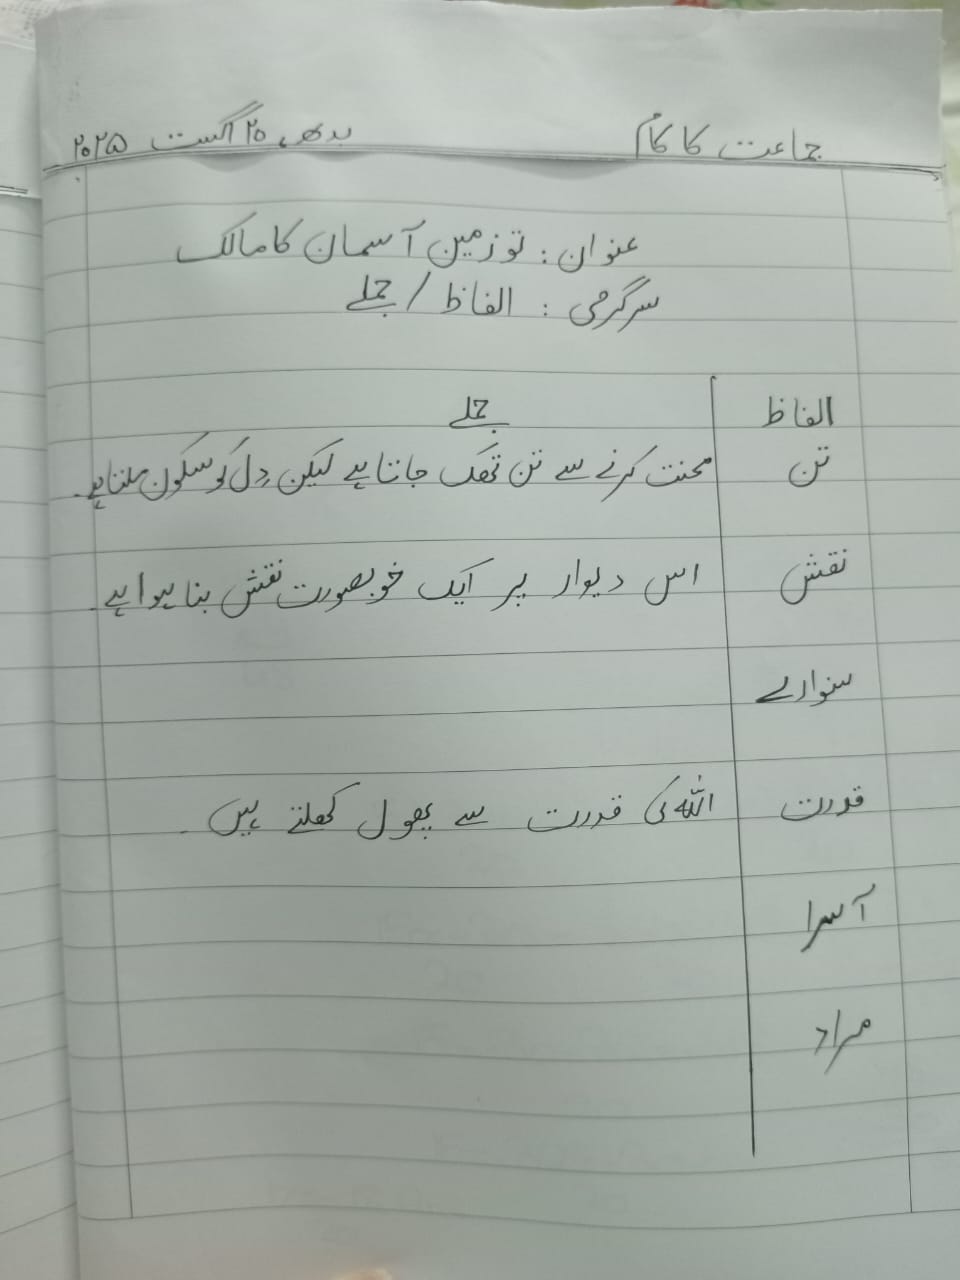 جماعت کا کام
بدھ، ۲۰ اگست ۲۰۲۵
عنوان : تو زمین آسمان کا مالک
سرگرمی : الفاظ / جملے
الفاظ جملے
تن محنت کرنے سے تن تھک جاتا ہے لیکن دِل کو سکون ملتا ہے۔
نقش اس دیوار پر ایک خوبصورت نقش بنا ہوا ہے۔
سنوارے
قدرت اللہ کی قدرت سے پھول کھلتے ہیں۔
آسرا
مراد